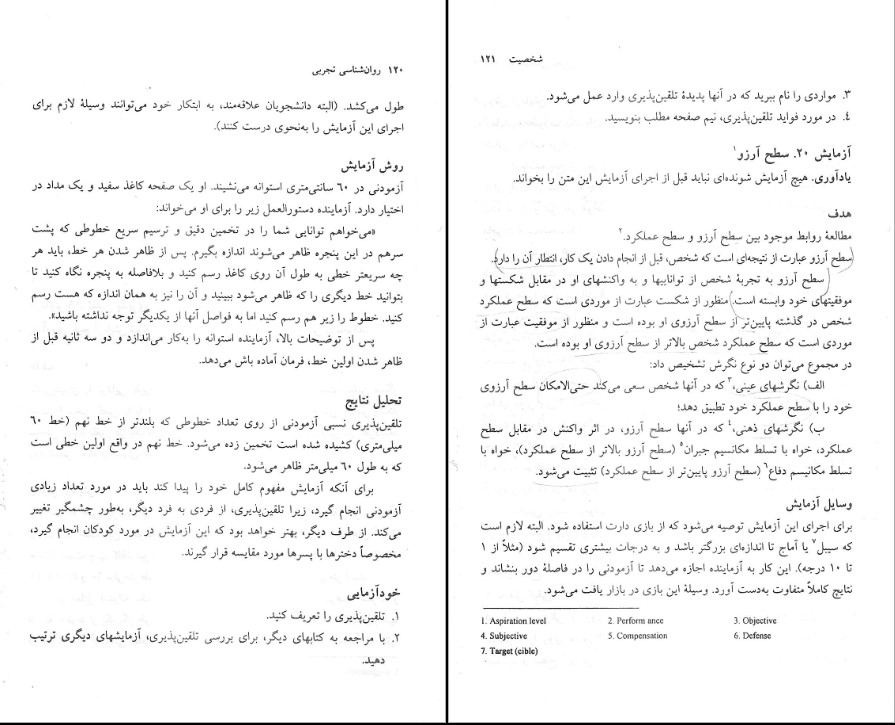 ۱۲۰ روان‌شناسی تجربی
طول می‌کشد. (البته دانشجویان علاقه‌مند، به ابتکار خود می‌توانند وسیلهٔ لازم برای
اجرای این آزمایش را به‌نحوی درست کنند).
روش آزمایش
آزمودنی در ۶۰ سانتی‌متری استوانه می‌نشیند. او یک صفحه کاغذ سفید و یک مداد در
اختیار دارد. آزماینده دستورالعمل زیر را برای او می‌خواند:
«می‌خواهم توانایی شما را در تخمین دقیق و ترسیم سریع خطوطی که پشت
سرهم در این پنجره ظاهر می‌شوند اندازه بگیرم. پس از ظاهر شدن هر خط، باید هر
چه سریعتر خطی به طول آن روی کاغذ رسم کنید و بلافاصله به پنجره نگاه کنید تا
بتوانید خط دیگری را که ظاهر می‌شود ببینید و آن را نیز به همان اندازه که هست رسم
کنید. خطوط را زیر هم رسم کنید اما به فواصل آنها از یکدیگر توجه نداشته باشید».
پس از توضیحات بالا، آزماینده استوانه را به‌کار می‌اندازد و دو سه ثانیه قبل از
ظاهر شدن اولین خط، فرمان آماده باش می‌دهد.
تحلیل نتایج
تلقین‌پذیری نسبی آزمودنی از روی تعداد خطوطی که بلندتر از خط نهم (خط ۶۰
میلی‌متری) کشیده شده است تخمین زده می‌شود. خط نهم در واقع اولین خطی است
که به طول ۶۰ میلی‌متر ظاهر می‌شود.
برای آنکه آزمایش مفهوم کامل خود را پیدا کند باید در مورد تعداد زیادی
آزمودنی انجام گیرد، زیرا تلقین‌پذیری، از فردی به فرد دیگر، به‌طور چشمگیر تغییر
می‌کند. از طرف دیگر، بهتر خواهد بود که این آزمایش در مورد کودکان انجام گیرد،
مخصوصاً دخترها با پسرها مورد مقایسه قرار گیرند.
خودآزمایی
۱. تلقین‌پذیری را تعریف کنید.
۲. با مراجعه به کتابهای دیگر، برای بررسی تلقین‌پذیری، آزمایشهای دیگری ترتیب
دهید.
شخصیت ۱۲۱
۳. مواردی را نام ببرید که در آنها پدیدهٔ تلقین‌پذیری وارد عمل می‌شود.
۴. در مورد فواید تلقین‌پذیری، نیم صفحه مطلب بنویسید.
آزمایش ۲۰. سطح آرزو۱
یادآوری. هیچ آزمایش شونده‌ای نباید قبل از اجرای آزمایش این متن را بخواند.
هدف
مطالعهٔ روابط موجود بین سطح آرزو و سطح عملکرد.۲
سطح آرزو عبارت از نتیجه‌ای است که شخص، قبل از انجام دادن یک کار، انتظار آن را دارد.
سطح آرزو به تجربهٔ شخص از تواناییها و به واکنشهای او در مقابل شکستها و
موفقیتهای خود وابسته است. منظور از شکست عبارت از موردی است که سطح عملکرد
شخص در گذشته پایین‌تر از سطح آرزوی او بوده است و منظور از موفقیت عبارت از
موردی است که سطح عملکرد شخص بالاتر از سطح آرزوی او بوده است.
در مجموع می‌توان دو نوع نگرش تشخیص داد:
الف) نگرشهای عینی،۳ که در آنها شخص سعی می‌کند حتی‌الامکان سطح آرزوی
خود را با سطح عملکرد خود تطبیق دهد؛
ب) نگرشهای ذهنی،۴ که در آنها سطح آرزو، در اثر واکنش در مقابل سطح
عملکرد، خواه با تسلط مکانسیم جبران۵ (سطح آرزو بالاتر از سطح عملکرد)، خواه با
تسلط مکانیسم دفاع۶ (سطح آرزو پایین‌تر از سطح عملکرد) تثبیت می‌شود.
وسایل آزمایش
برای اجرای این آزمایش توصیه می‌شود که از بازی دارت استفاده شود. البته لازم است
که سیبل۷ یا آماج تا اندازه‌ای بزرگتر باشد و به درجات بیشتری تقسیم شود (مثلاً از ۱
تا ۱۰ درجه). این کار به آزماینده اجازه می‌دهد تا آزمودنی را در فاصلهٔ دور بنشاند و
نتایج کاملاً متفاوت به‌دست آورد. وسیلهٔ این بازی در بازار یافت می‌شود.
1. Aspiration level 2. Perform ance 3. Objective
4. Subjective 5. Compensation 6. Defense
7. Target (cible)